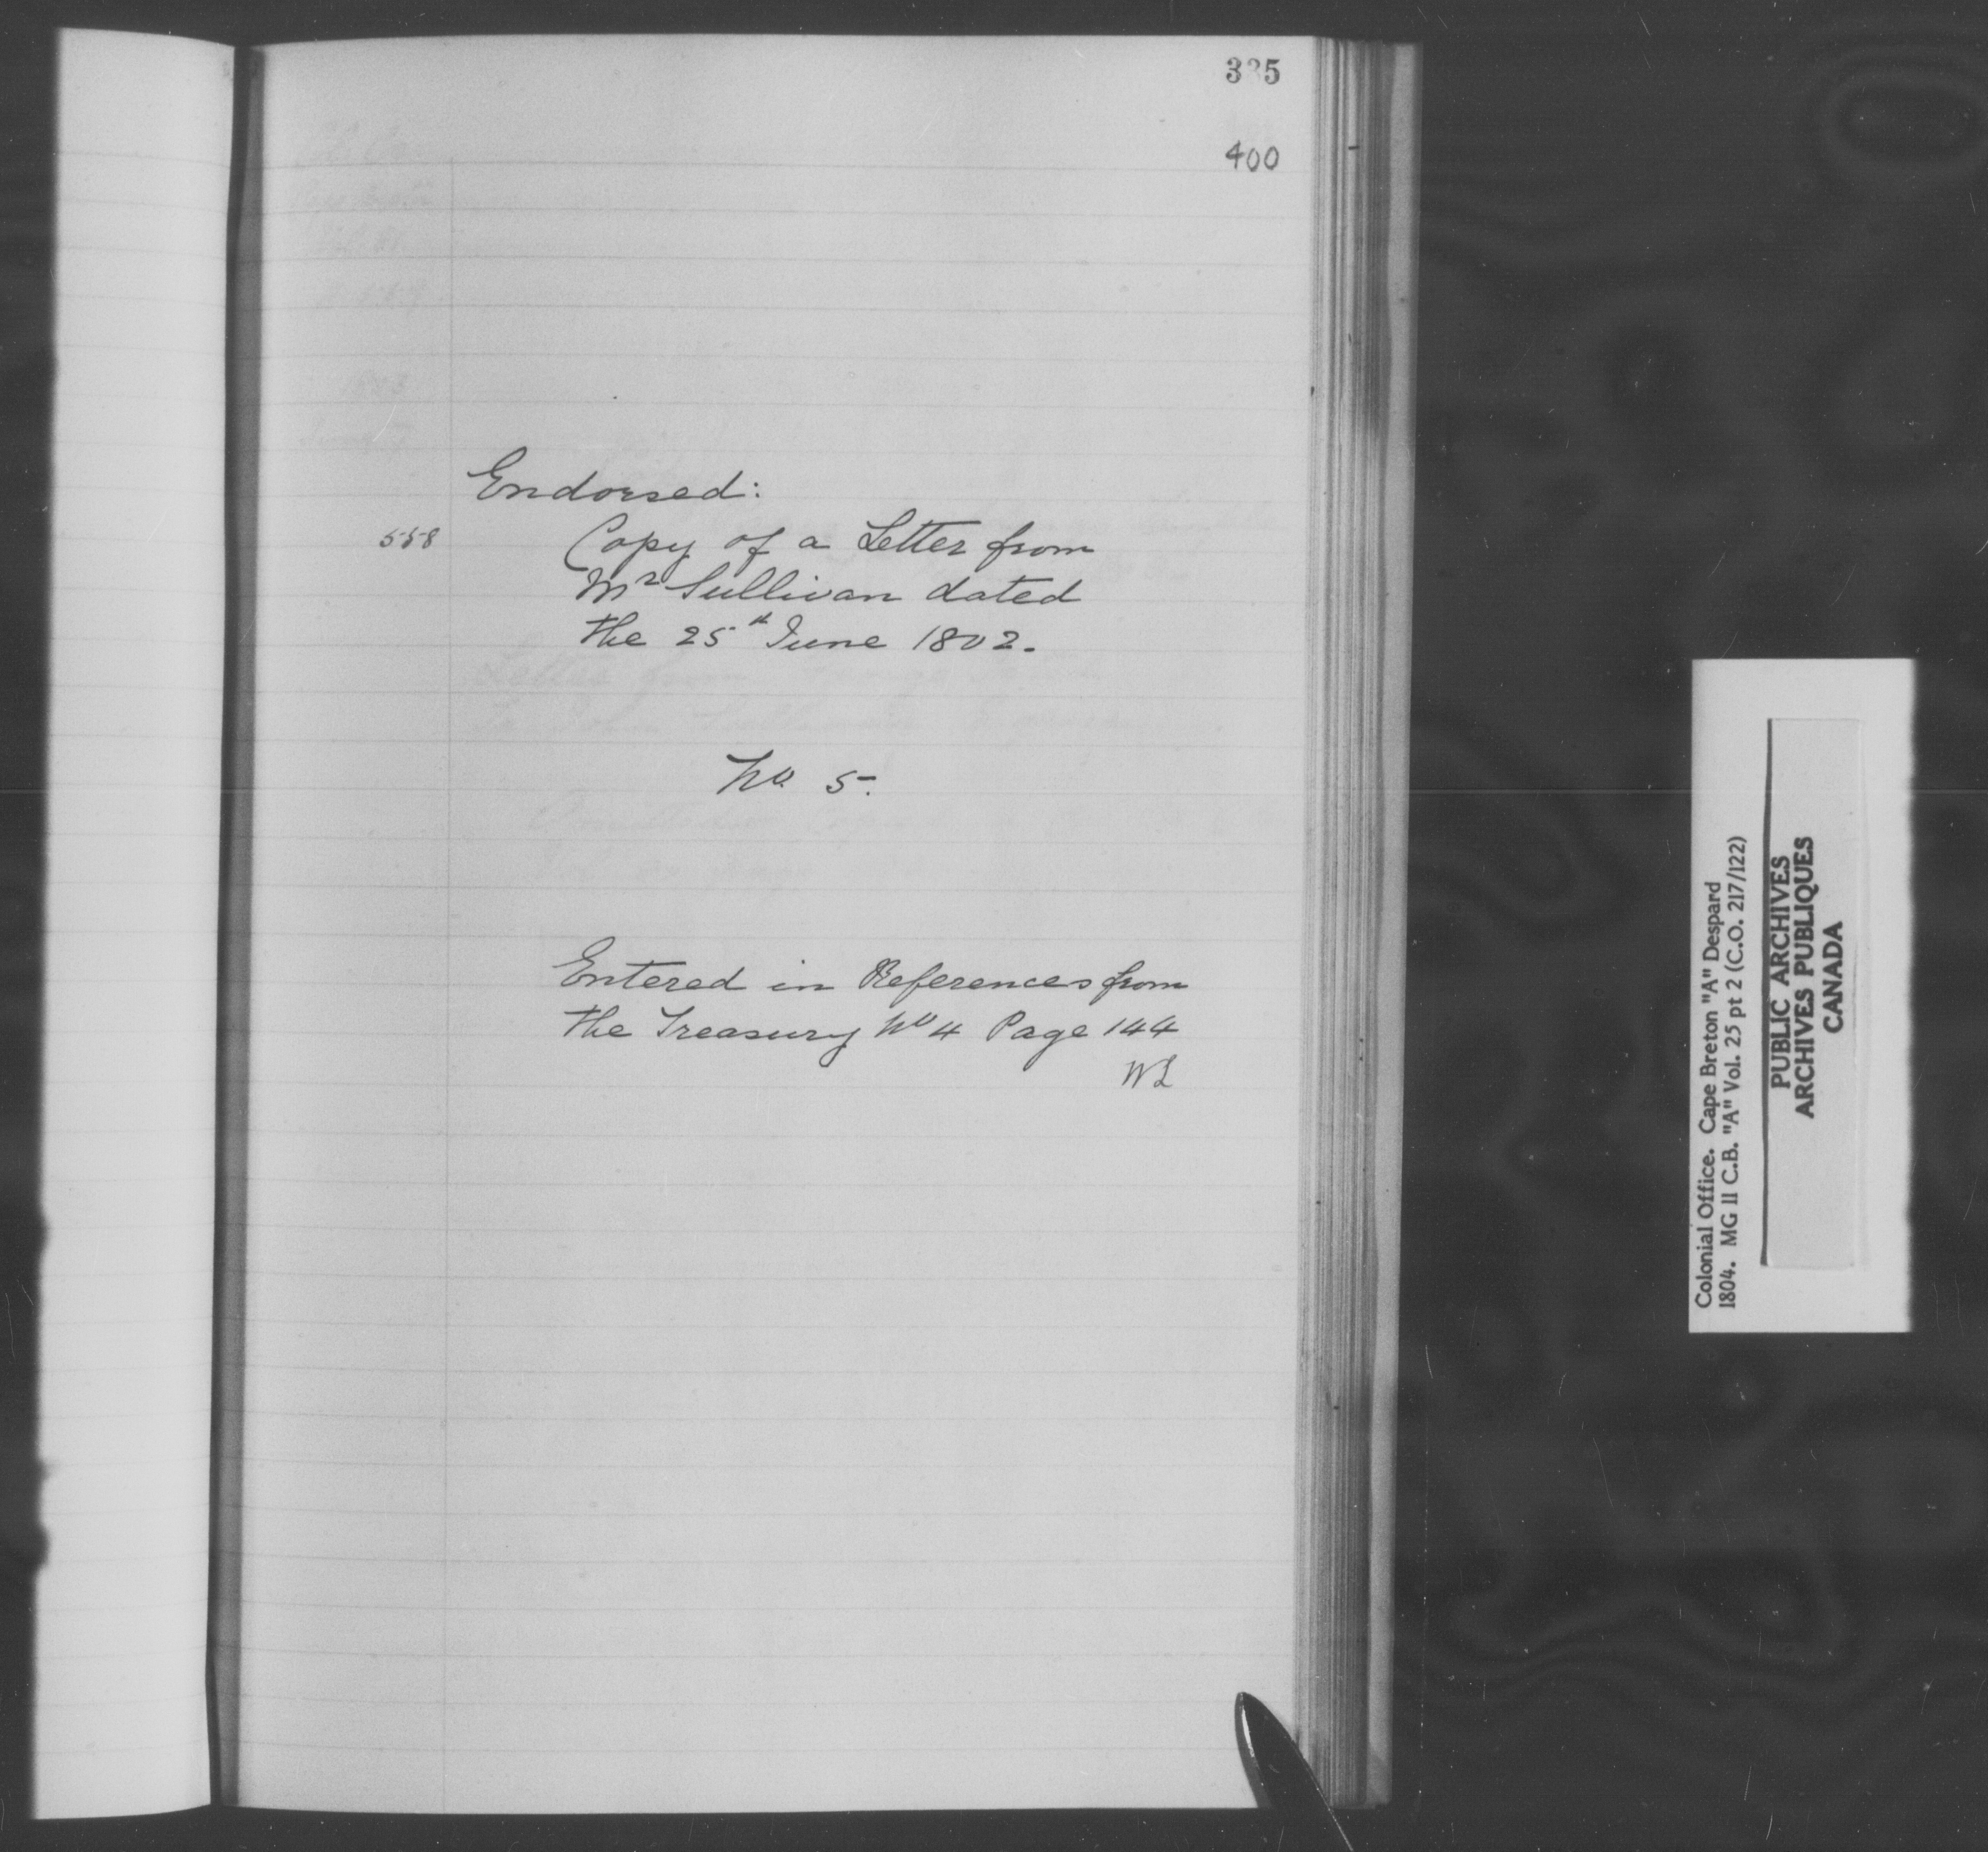 335
400
Endorsed:
558 Copy of a Letter from
Mr Sullivan dated
the 25th June 1802.
No. 5.
Entered in References from
the Treasury No 4 Page 144
WL
Colonial Office. Cape Breton "A" Despard
1804. MG 11 C.B. "A" Vol. 25 pt 2 (C.O. 217/122)
PUBLIC ARCHIVES
ARCHIVES PUBLIQUES
CANADA